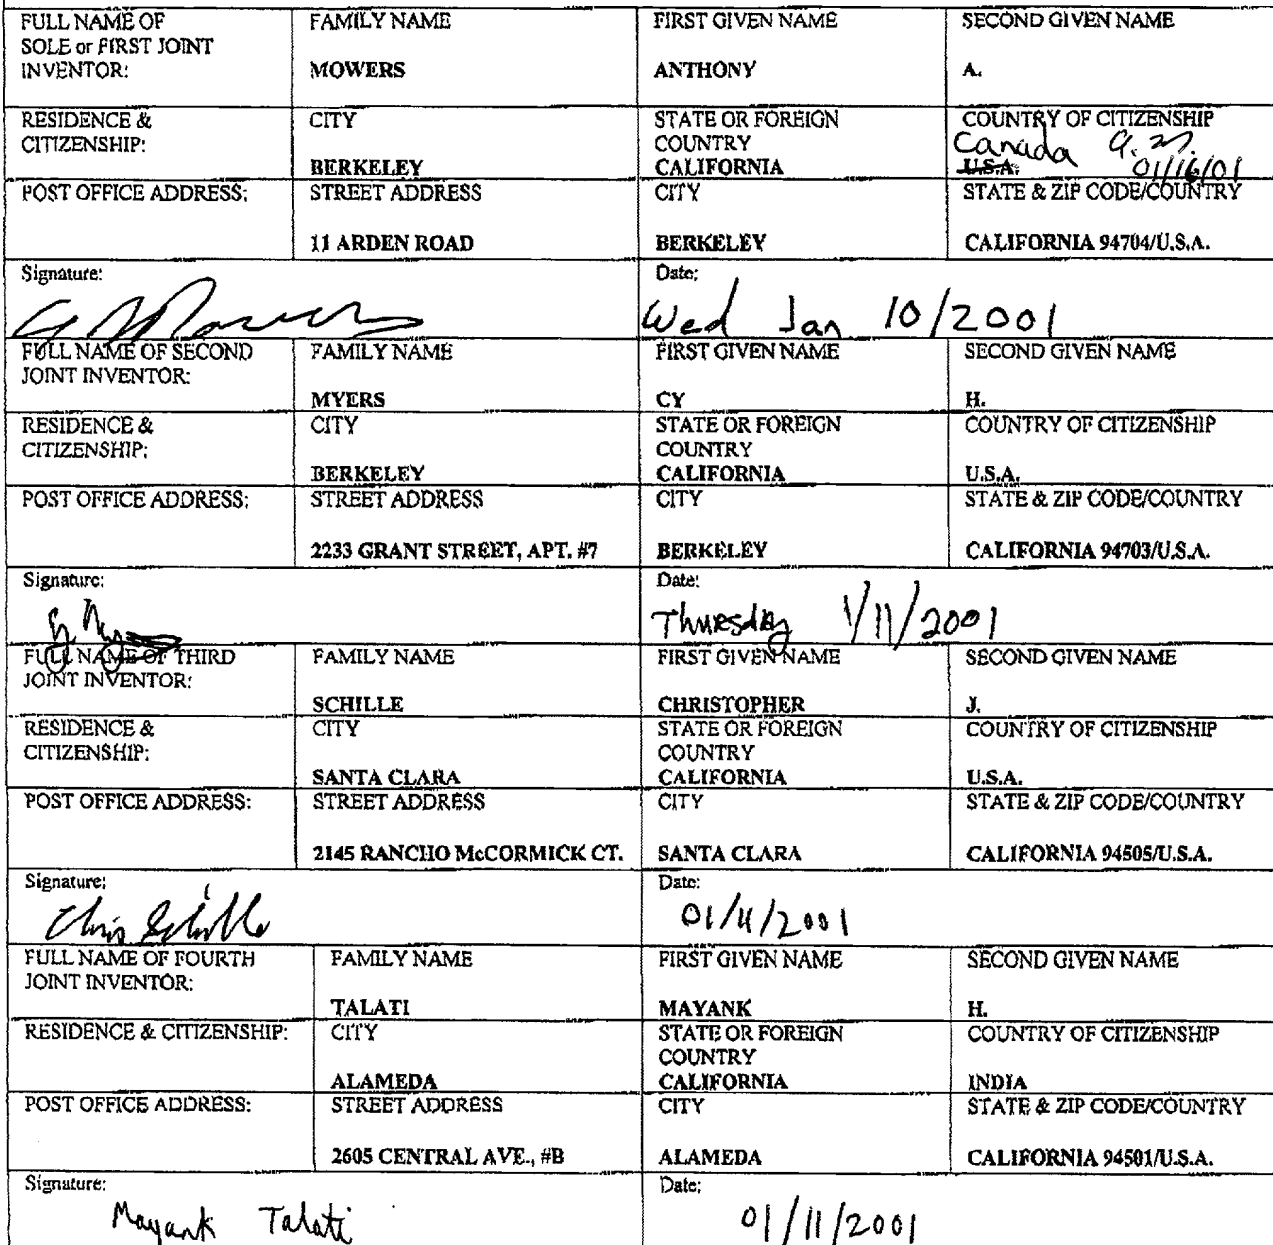 FULL NAME OF SOLE or FIRST JOINT INVENTOR: FAMILY NAME MOWERS FIRST GIVEN NAME ANTHONY SECOND GIVEN NAME A.
RESIDENCE & CITIZENSHIP: CITY BERKELEY STATE OR FOREIGN COUNTRY CALIFORNIA COUNTRY OF CITIZENSHIP Canada U.S.A. 01/16/01
POST OFFICE ADDRESS: STREET ADDRESS 11 ARDEN ROAD CITY BERKELEY STATE & ZIP CODE/COUNTRY CALIFORNIA 94704/U.S.A.
Signature: Date: Wed Jan 10/2001
FULL NAME OF SECOND JOINT INVENTOR: FAMILY NAME MYERS FIRST GIVEN NAME CY SECOND GIVEN NAME H.
RESIDENCE & CITIZENSHIP: CITY BERKELEY STATE OR FOREIGN COUNTRY CALIFORNIA COUNTRY OF CITIZENSHIP U.S.A.
POST OFFICE ADDRESS: STREET ADDRESS 2233 GRANT STREET, APT. #7 CITY BERKELEY STATE & ZIP CODE/COUNTRY CALIFORNIA 94703/U.S.A.
Signature: Date: Thursday 1/11/2001
FULL NAME OF THIRD JOINT INVENTOR: FAMILY NAME SCHILLE FIRST GIVEN NAME CHRISTOPHER SECOND GIVEN NAME J.
RESIDENCE & CITIZENSHIP: CITY SANTA CLARA STATE OR FOREIGN COUNTRY CALIFORNIA COUNTRY OF CITIZENSHIP U.S.A.
POST OFFICE ADDRESS: STREET ADDRESS 2145 RANCHO McCORMICK CT. CITY SANTA CLARA STATE & ZIP CODE/COUNTRY CALIFORNIA 94505/U.S.A.
Signature: Chris Schille Date: 01/11/2001
FULL NAME OF FOURTH JOINT INVENTOR: FAMILY NAME TALATI FIRST GIVEN NAME MAYANK SECOND GIVEN NAME H.
RESIDENCE & CITIZENSHIP: CITY ALAMEDA STATE OR FOREIGN COUNTRY CALIFORNIA COUNTRY OF CITIZENSHIP INDIA
POST OFFICE ADDRESS: STREET ADDRESS 2605 CENTRAL AVE., #B CITY ALAMEDA STATE & ZIP CODE/COUNTRY CALIFORNIA 94501/U.S.A.
Signature: Mayank Talati Date: 01/11/2001